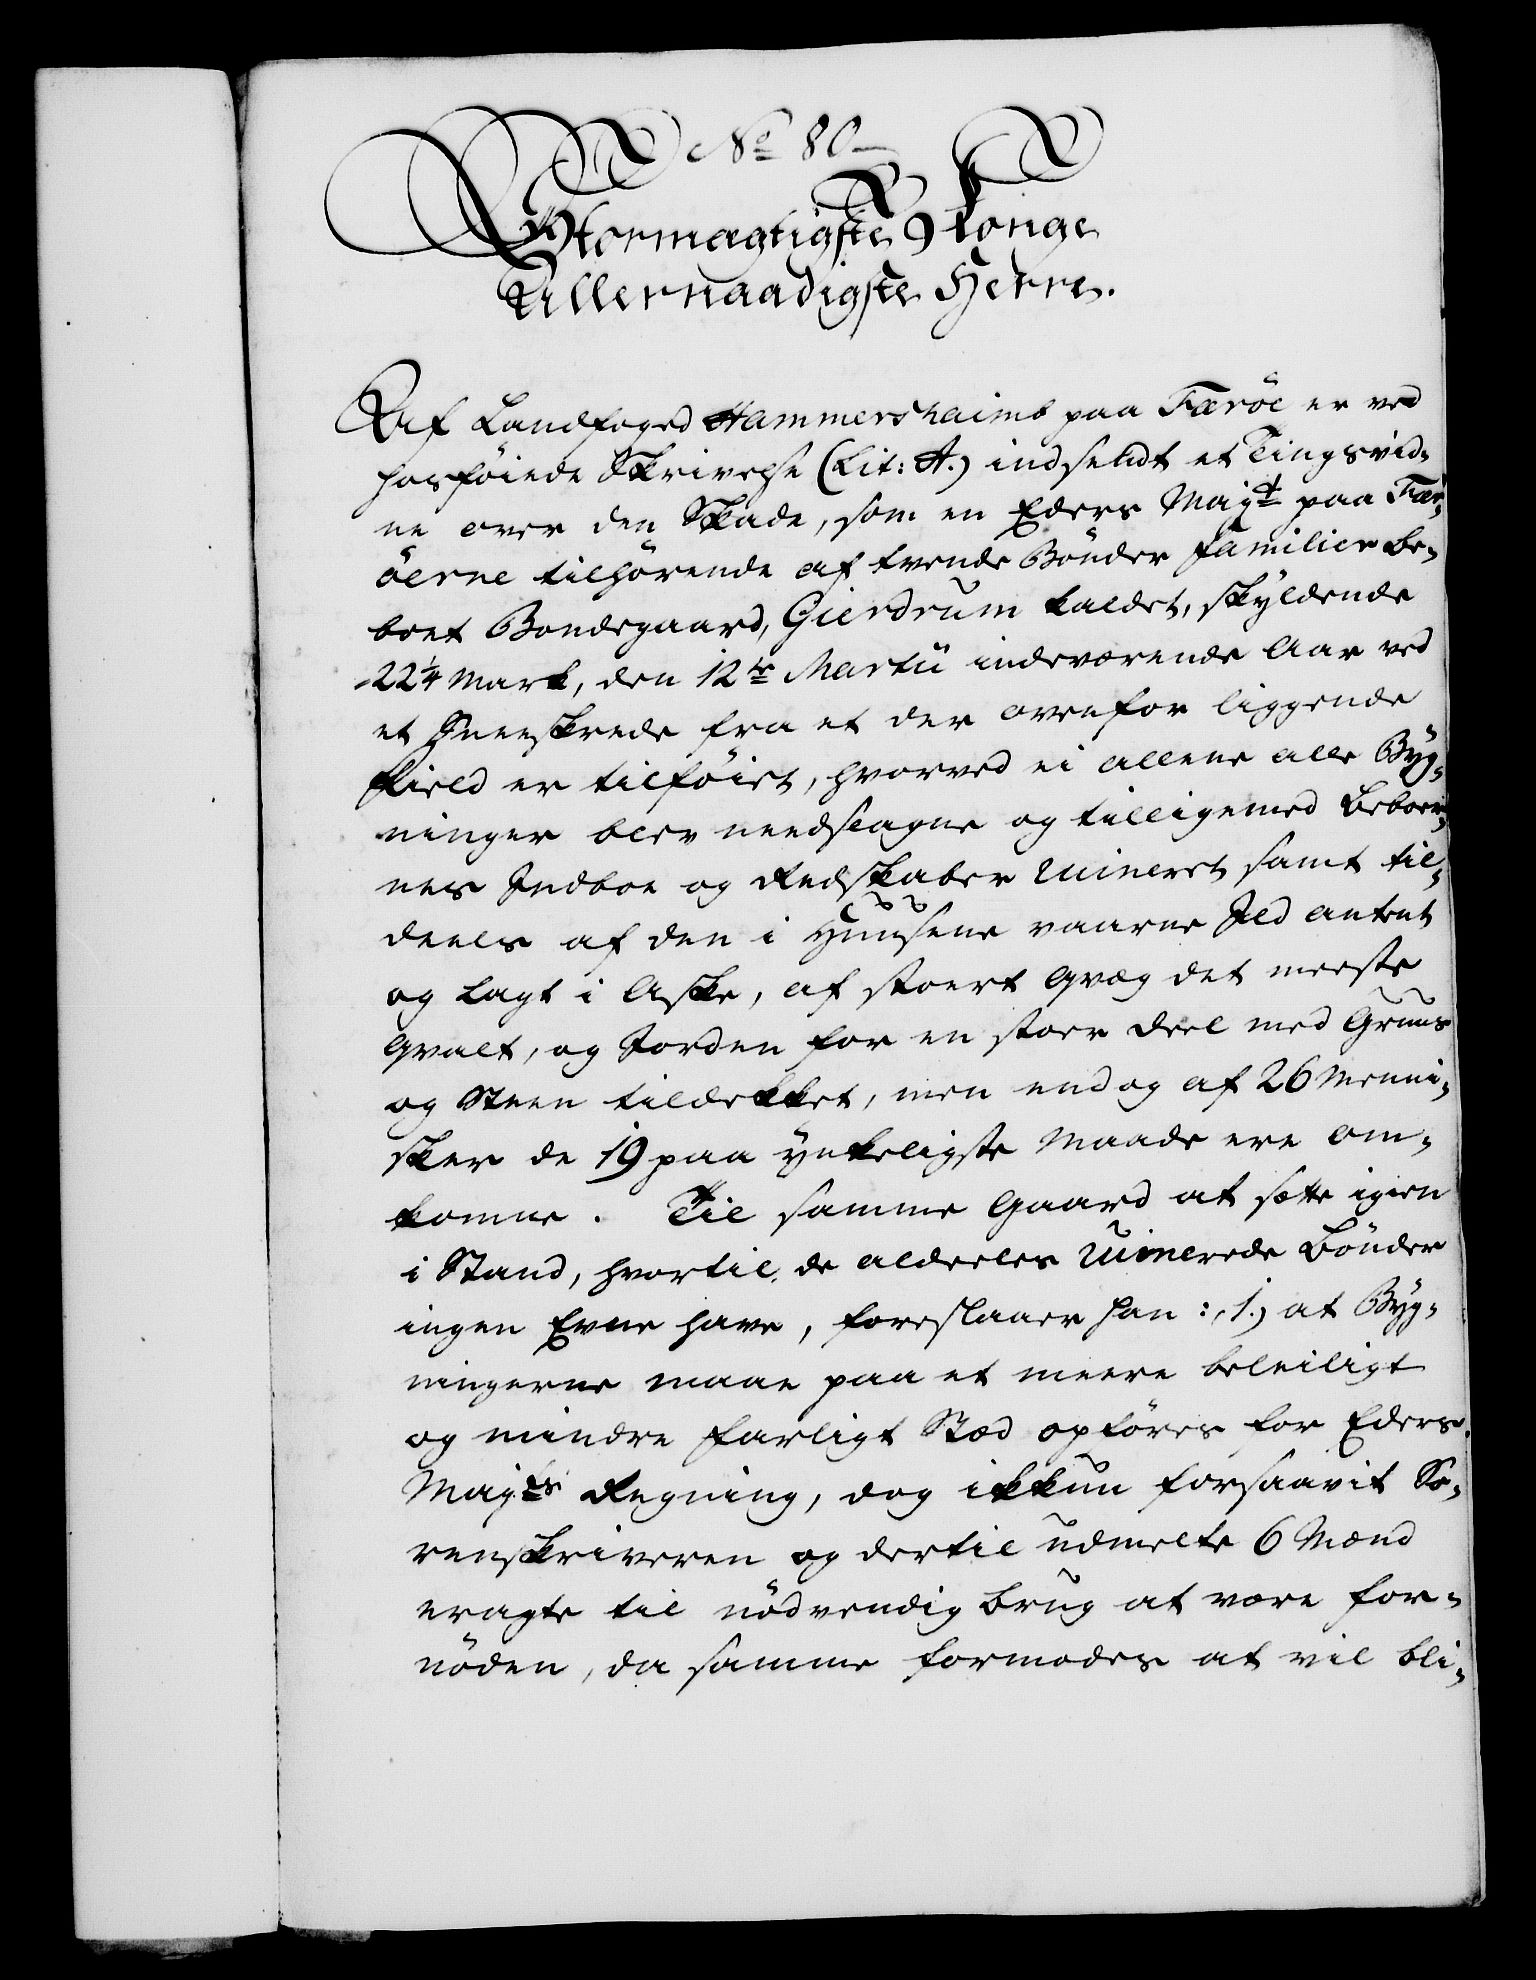 No 80
Stormægtigste Konge
Allernaadigste Herre.
Af Landfoged Hammershaimb paa Færöe er ved
hosföiede Skrivelse (Lit: A.) indsendt et Tingsvid-
ne over den Skade, som en Eders Mayt paa Fær-
öerne tilhörende af tvende Bönder Familier be-
boet Bondegaard, Gierdrum kaldet, skyldende
22¼ Mark, den 12te Martii indeværende Aar ved
et Sneeskrede fra et der ovenfor liggende
Field er tilföiet, hvorved ei allene alle Byg-
ninger blev needslagne og tilligemed Beboer-
nes Indboe og Redskaber ruineret samt til-
deels af den i Huusene værende Ild antent
og lagt i Aske, af stoert Qvæg det meeste
qvalt, og Jorden for en stoer Deel med Gruus
og Steen tildekket, men endog af 26 Menni-
sker de 19 paa ynkeligste Maade ere om-
komne. Til samme Gaard at sætte igien
i Stand, hvortil de aldeeles ruinerede Bönder
ingen Evne have, foreslaaer han: 1.) at Byg-
ningerne maae paa et meere beleiligt
og mindre farligt Stæd opföres for Eders
Mayts Regning, dog ikkun forsaavit So-
renskriveren og dertil udmelte 6 Mænd
eragte til nödvendig Brug at være for-
nöden, da samme formodes at vil bli-